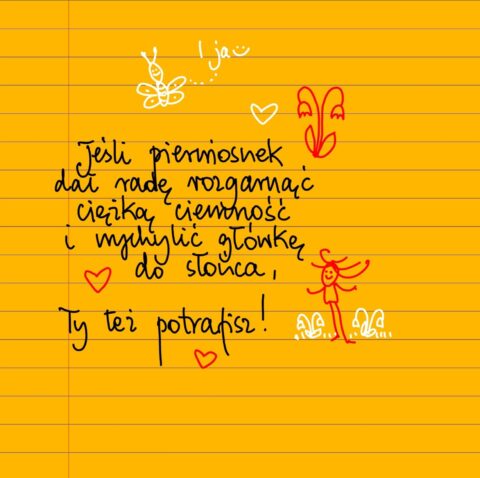 I ja
Jeśli pierwiosnek
dał radę rozgarnąć
ciężką ciemność
i wychylić główkę
do słońca,
Ty też potrafisz!